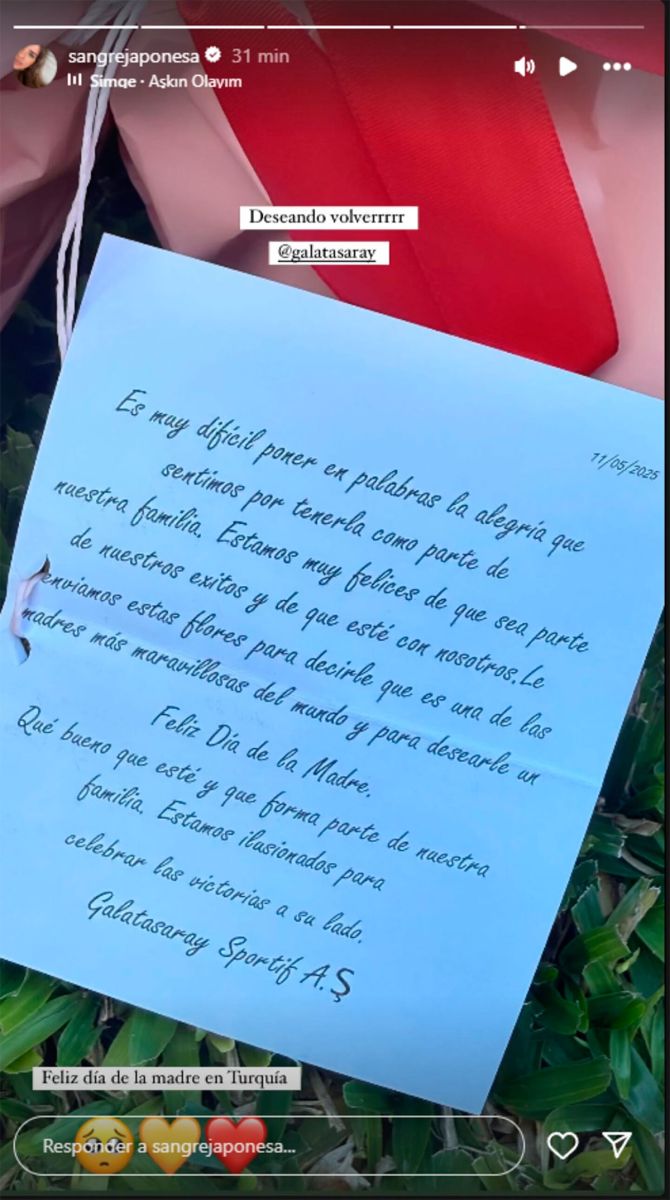 sangrejaponesa 31 min
Simge · Aşkın Olayım
Deseando volverrrrr
@galatasaray
11/05/2025
Es muy difícil poner en palabras la alegría que
sentimos por tenerla como parte de
nuestra familia. Estamos muy felices de que sea parte
de nuestros exitos y de que esté con nosotros.Le
enviamos estas flores para decirle que es una de las
madres más maravillosas del mundo y para desearle un
Feliz Día de la Madre.
Qué bueno que esté y que forma parte de nuestra
familia. Estamos ilusionados para
celebrar las victorias a su lado.
Galatasaray Sportif A.Ş
Feliz día de la madre en Turquía
Responder a sangrejaponesa...